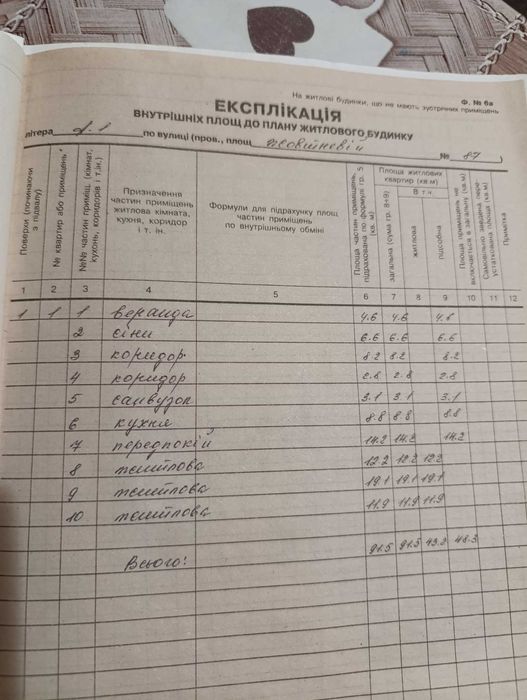 На житлові будинки, що не мають зустрічних приміщень
Ф. № 6а
ЕКСПЛІКАЦІЯ
ВНУТРІШНІХ ПЛОЩ ДО ПЛАНУ ЖИТЛОВОГО БУДИНКУ
літера А.1 по вулиці (пров., площ Жовтневій № 87 )
Поверхи (починаючи з підвалу)
№ квартир або приміщень
№№ частин приміщ. (кімнат, кухонь, коридорів і т.ін.)
Призначення
частин приміщень
житлова кімната,
кухня, коридор
і т. ін.
Формули для підрахунку площ
частин приміщень
по внутрішньому обміні
Площа частин приміщень, підрахована по формулі гр. 5 (кв. м)
Площа житлових
квартир (кв.м)
В т.ч.
загальна (сума гр. 8+9)
житлова
підсобна
Площа приміщень не включається в загальну (кв.м)
Самовільно зведена
площа (кв.м)
Примітка
1 2 3 4 5 6 7 8 9 10 11 12
1 1 1 веранда 4.6 4.6 4.6
2 сіни 6.6 6.6 6.6
3 коридор 8.2 8.2 8.2
4 коридор 2.8 2.8 2.8
5 санвузол 3.1 3.1 3.1
6 кухня 8.8 8.8 8.8
7 передпокій 14.2 14.2 14.2
8 житлова 12.2 12.2 12.2
9 житлова 19.1 19.1 19.1
10 житлова 11.9 11.9 11.9
Всього: 91.5 91.5 43.2 48.3